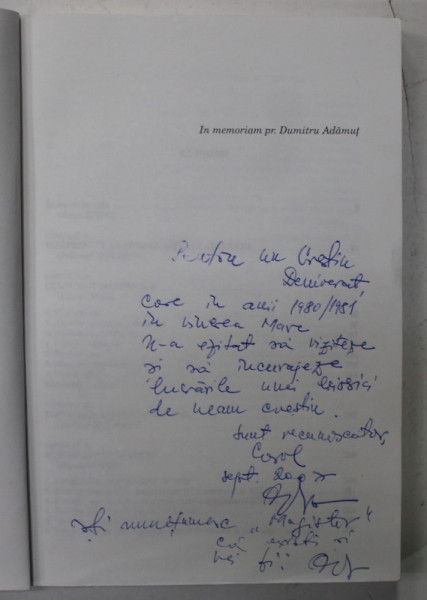 In memoriam pr. Dumitru Adămuț
Pentru un Creștin
Democrat,
care în anii 1980/1981
în Vinerea Mare
n-a ezitat să viziteze
și să încurajeze
lucrările unei biserici
de neam creștin.
Sunt recunoscător,
sept. 2007
Îți mulțumesc „Magister"
că exiști și
vei fi!